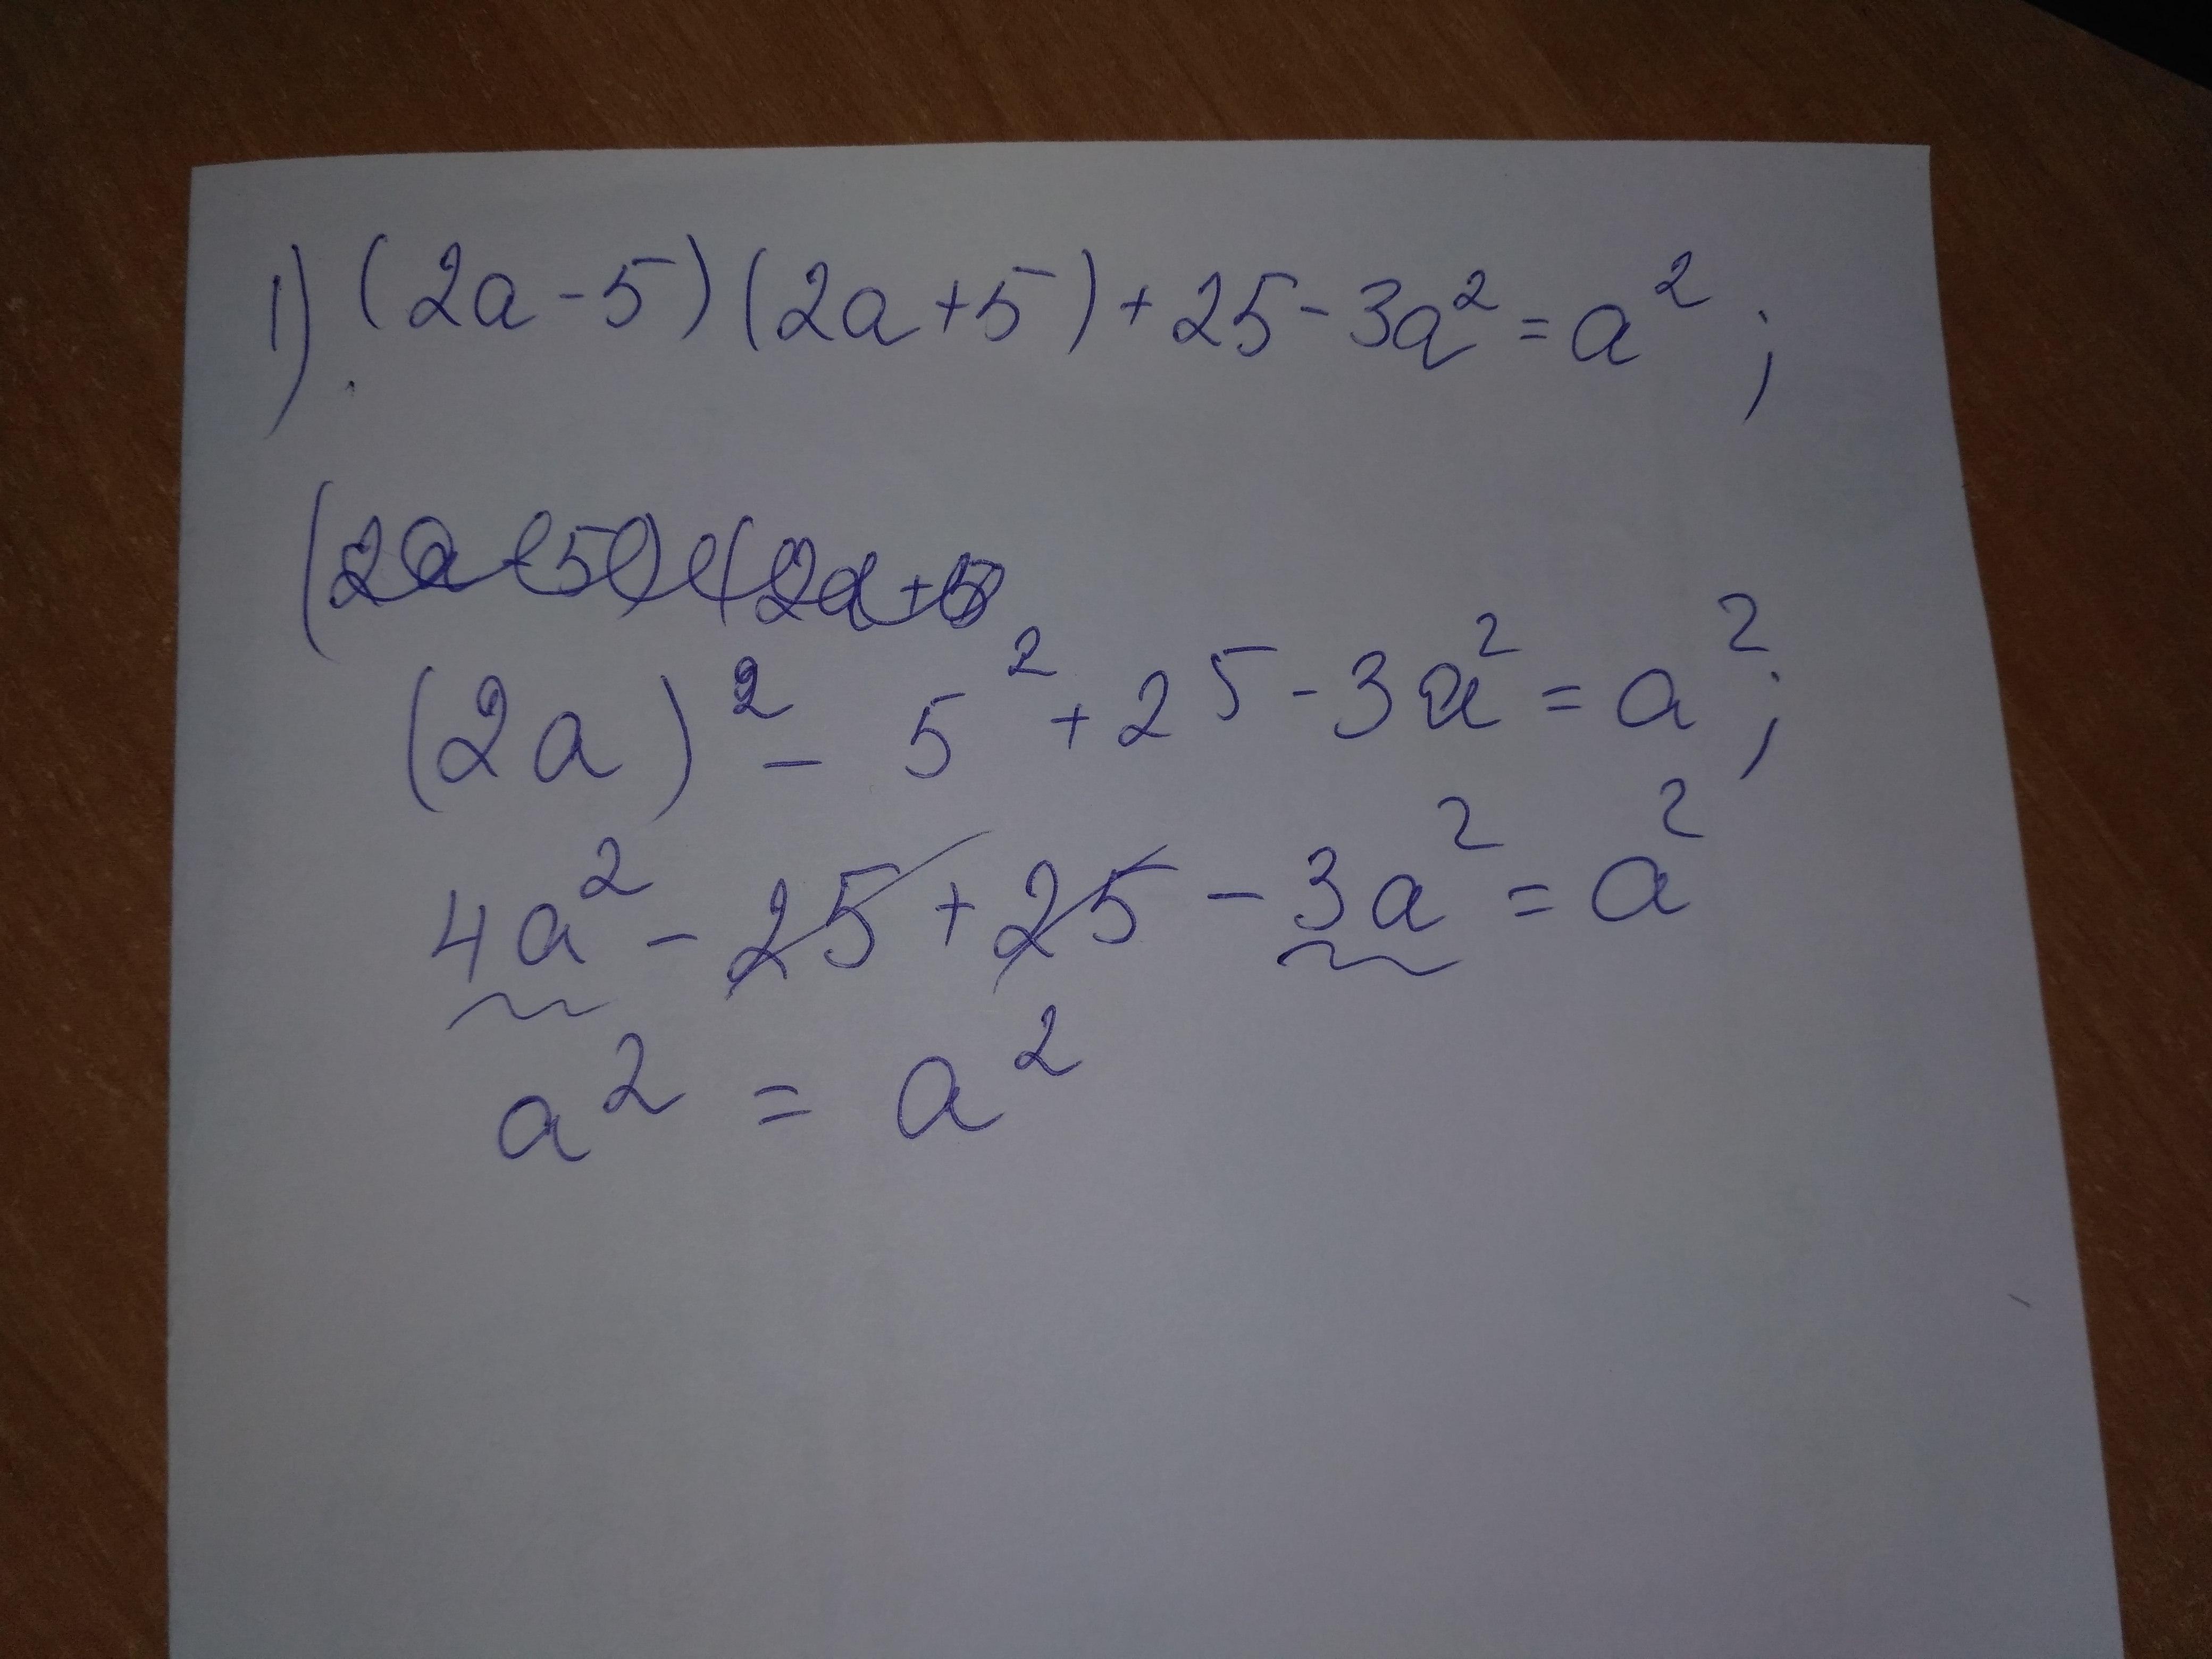 1) (2a-5)(2a+5)+25-3a²=a²;
(2a-5)(2a+5
(2a)²-5²+25-3a²=a²;
4a²-25+25-3a²=a²
a²=a²